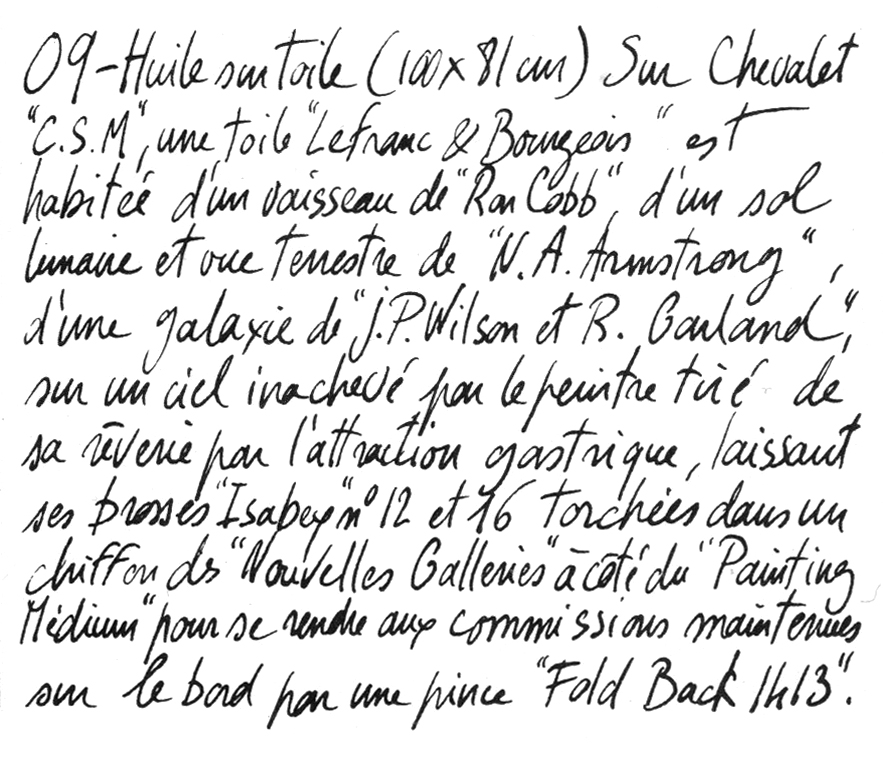 09-Huile sur toile (100x81cm) Sur Chevalet
"C.S.M", une toile "Lefranc & Bourgeois" est
habitée d'un vaisseau de "Ron Cobb", d'un sol
lunaire et vue terrestre de "N.A. Armstrong",
d'une galaxie de "J.P. Wilson et R. Garland",
sur un ciel inachevé par le peintre tiré de
sa rêverie par l'attraction gastrique, laissant
ses brosses "Isabey" n° 12 et 16 torchées dans un
chiffon des "Nouvelles Galleries" à côté du "Painting
Médium" pour se rendre aux commissions maintenues
sur le bord par une pince "Fold Back 1h13".